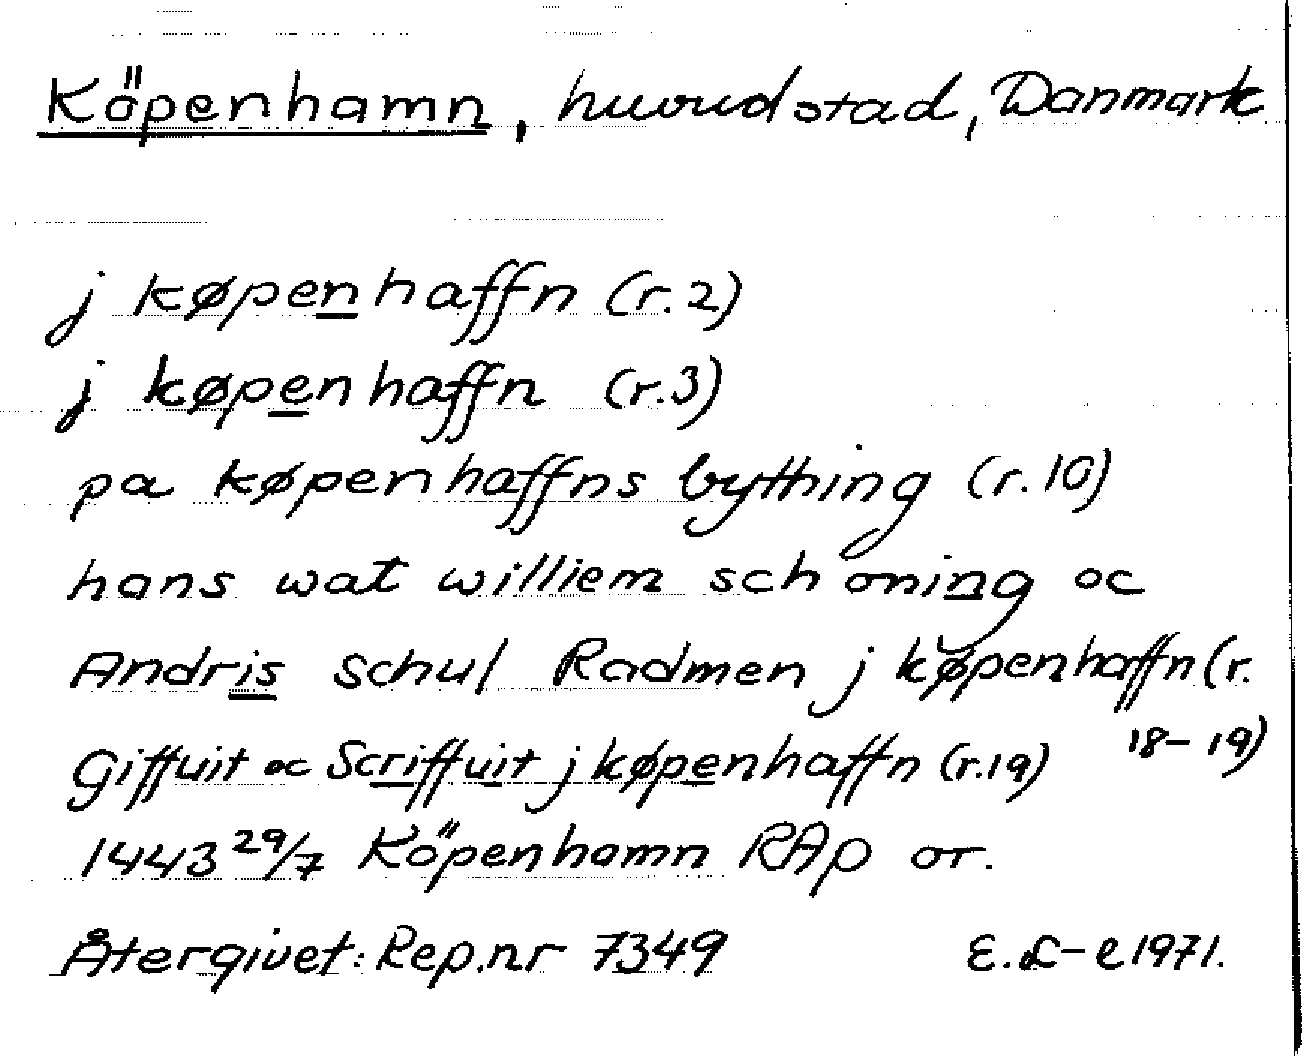 Köpenhamn, huvudstad, Danmark
j køpenhaffn (r.2)
j køpenhaffn (r.3)
pa køpenhaffns bything (r.10)
hans wat williem schöning oc
Andris schul Radmen j køpenhaffn (r.
18-19)
Giffuit oc Scriffuit j køpenhaffn (r.19)
1443 29/7 Köpenhamn RAp or.
Återgivet: Rep.nr 7349 E.L-e 1971.